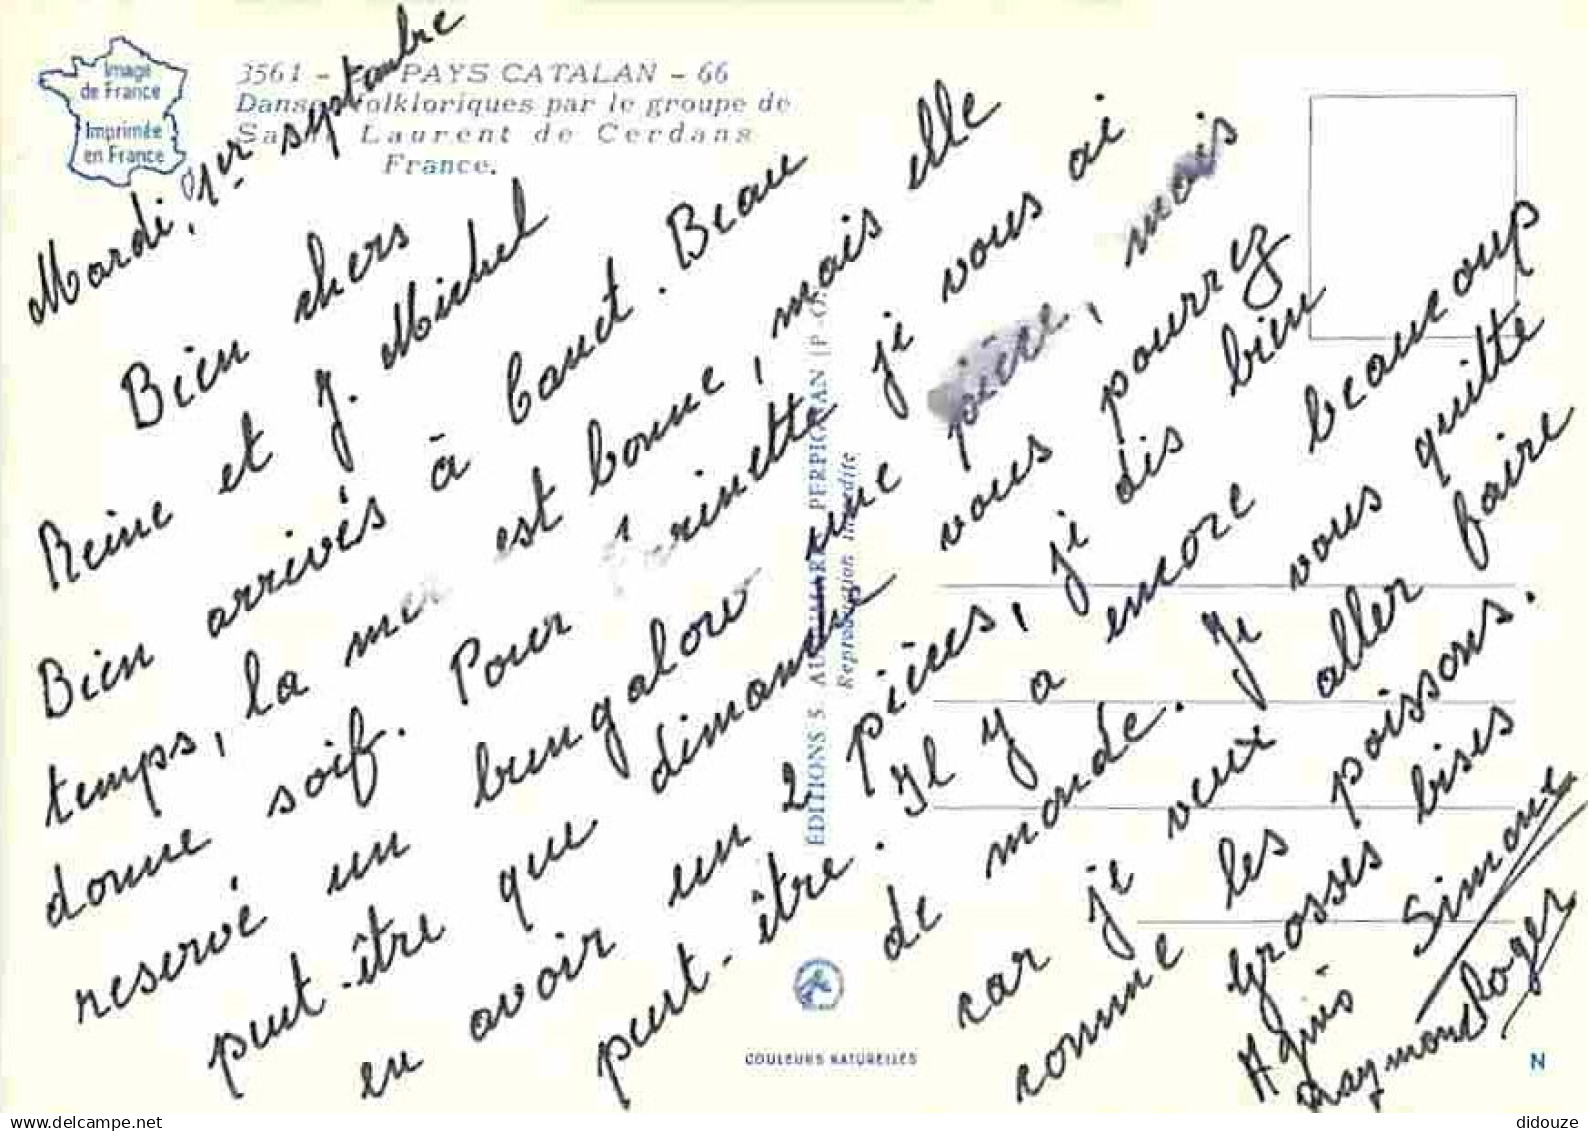 Image
de France
Imprimée
en France
3561 - PAYS CATALAN - 66
Danses folkloriques par le groupe de
Saint Laurent de Cerdans
France.
Mardi, 1er septembre
Bien chers
Reine et J. Michel
Bien arrivés à Canet. Beau
temps, la mer est bonne, mais elle
donne soif. Pour Perinette je vous ai
reservé un bungalow une pièce, mais
peut-être que dimanche vous pourrez
en avoir un 2 pièces, je dis bien
peut-être. Il y a encore beaucoup
de monde. Je vous quitte
car je veux aller faire
comme les poissons.
Grosses bises
Agnès Simone
Raymond Roger
ÉDITIONS S. PERPIGNAN (P.-O.)
Reproduction Interdite
COULEURS NATURELLES
N
didouze